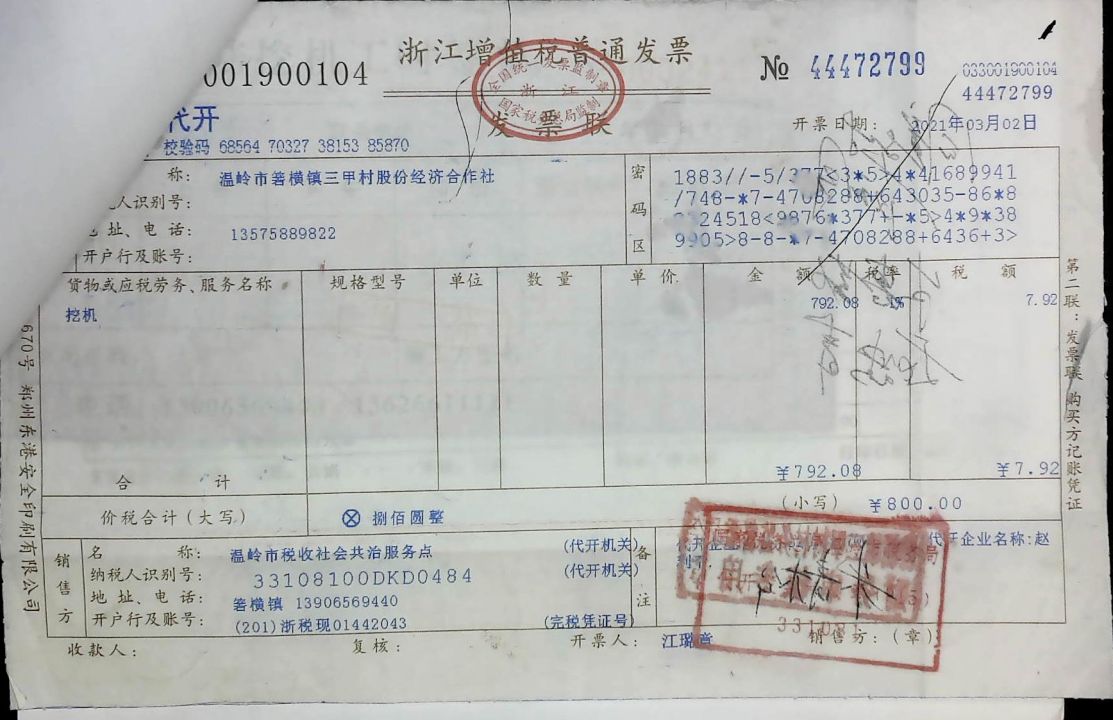 001900104
浙江增值税普通发票
发票联
全国统一发票监制章
浙江
国家税务总局监制
№ 44472799
033001900104
44472799
代开
校验码 68564 70327 38153 85870
开票日期: 2021年03月02日
称: 温岭市箬横镇三甲村股份经济合作社
人识别号:
址、电话: 13575889822
开户行及账号:
密码区
1883//-5/377<3*5>4*41689941
/748-*7-4708288+643035-86*8
24518<9876*377+-*5>4*9*38
9905>8-8-*7-4708288+6436+3>
货物或应税劳务、服务名称 规格型号 单位 数量 单价 金额 税率 税额
挖机 792.08 1% 7.92
合计 ¥792.08 ¥7.92
价税合计(大写) ⊗ 捌佰圆整 (小写) ¥800.00
销售方
名称: 温岭市税收社会共治服务点 (代开机关)
纳税人识别号: 33108100DKD0484 (代开机关)
地址、电话: 箬横镇 13906569440
开户行及账号: (201)浙税现01442043 (完税凭证号)
备注
代开企业名称:赵
收款人: 复核: 开票人: 江璐 销售方:(章)
第二联:发票联 购买方记账凭证
670号 郑州东港安全印刷有限公司